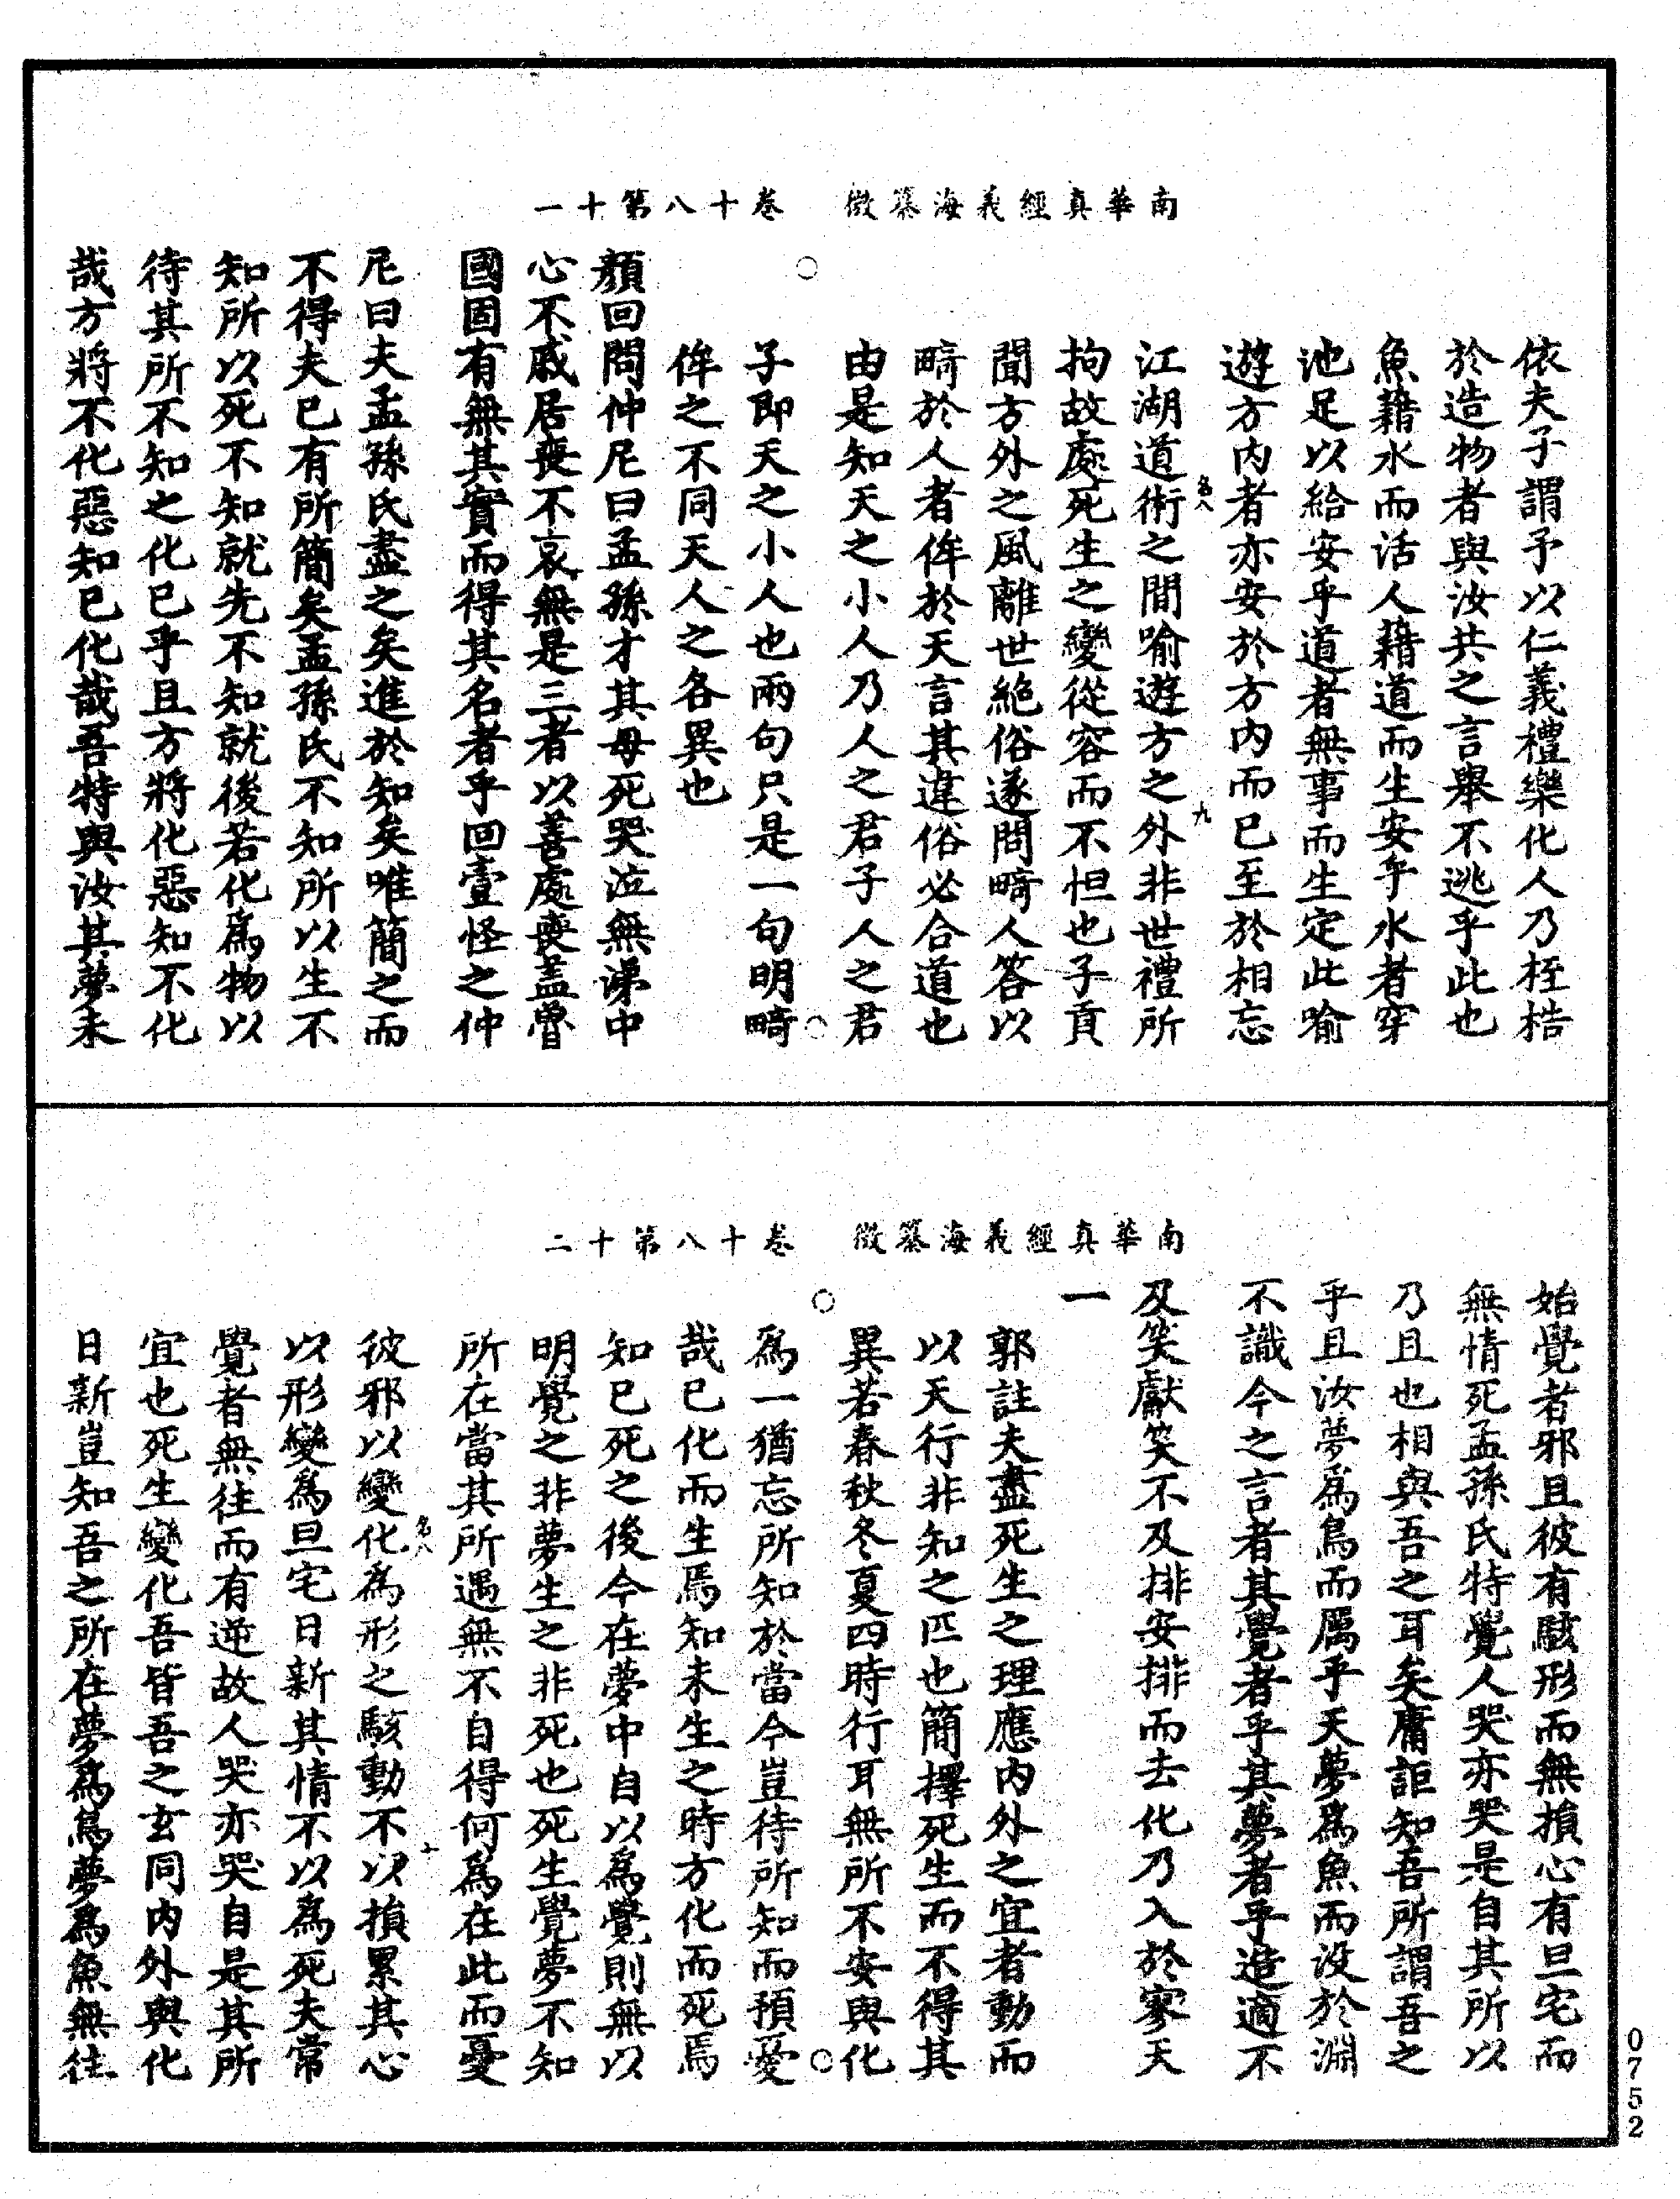 南華真經義海纂微　卷十八第十一
依夫子謂予以仁義禮樂化人乃桎梏
於造物者與汝共之言舉不逃乎此也
魚藉水而活人藉道而生安乎水者穿
池足以給安乎道者無事而生定此喻
遊方內者亦安於方內而已至於相忘
名八　九
江湖道術之間喻遊方之外非世禮所
拘故處死生之變從容而不怛也子貢
聞方外之風離世絕俗遂問畸人答以
畸於人者侔於天言其違俗必合道也
由是知天之小人乃人之君子人之君
子即天之小人也兩句只是一句明畸
侔之不同天人之各異也
顏回問仲尼曰孟孫才其母死哭泣無涕中
心不慼居喪不哀無是三者以善處喪蓋魯
國固有無其實而得其名者乎回壹怪之仲
尼曰夫孟孫氏盡之矣進於知矣唯簡之而
不得夫已有所簡矣孟孫氏不知所以生不
知所以死不知就先不知就後若化爲物以
待其所不知之化已乎且方將化惡知不化
哉方將不化惡知已化哉吾特與汝其夢未
南華真經義海纂微　卷十八第十二
始覺者邪且彼有駭形而無損心有旦宅而
無情死孟孫氏特覺人哭亦哭是自其所以
乃且也相與吾之耳矣庸詎知吾所謂吾之
乎且汝夢爲鳥而厲乎天夢爲魚而沒於淵
不識今之言者其覺者乎其夢者乎造適不
及笑獻笑不及排安排而去化乃入於寥天
一
郭註夫盡死生之理應內外之宜者動而
以天行非知之匹也簡擇死生而不得其
異若春秋冬夏四時行耳無所不安與化
爲一猶忘所知於當今豈待所知而預憂
哉已化而生焉知未生之時方化而死焉
知已死之後今在夢中自以爲覺則無以
明覺之非夢生之非死也死生覺夢不知
所在當其所遇無不自得何爲在此而憂
名八　十
彼邪以變化爲形之駭動不以損累其心
以形變爲旦宅日新其情不以爲死夫常
覺者無往而有逆故人哭亦哭自是其所
宜也死生變化吾皆吾之玄同內外與化
日新豈知吾之所在夢爲鳥夢爲魚無往
0752